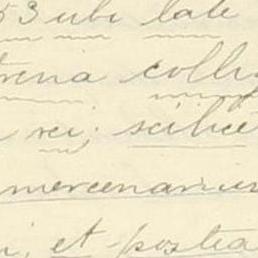 53 ubi late
collig
rei; scilice
mercenariu
i, et postea